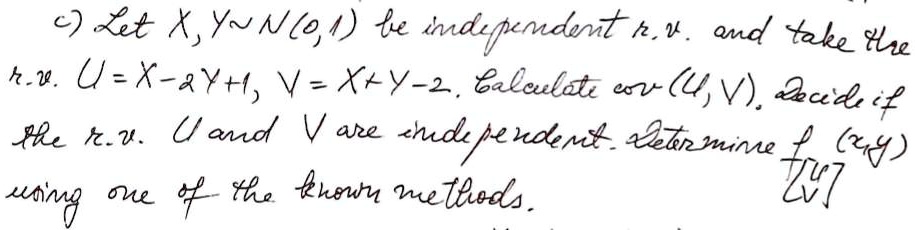 c) Let X, Y ~ N(0,1) be independent r.v. and take the
r.v. U = X-2Y+1, V = X+Y-2. Calculate cov (U, V). Decide if
the r.v. U and V are independent. Determine f[U V] (x,y)
using one of the known methods.